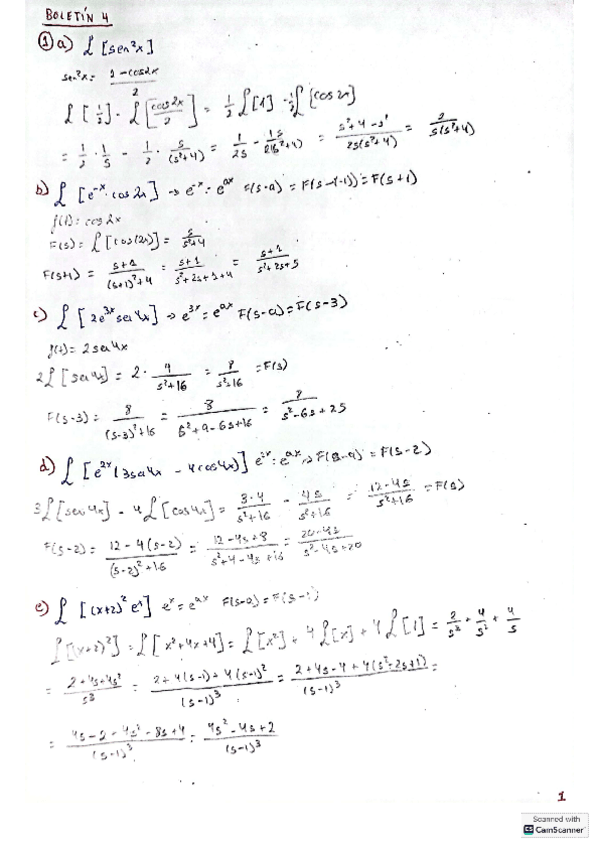 BOLETÍN 4
① a) ℒ [sen²x]
sen²x = 1 - cos2x / 2
ℒ [1/2] - ℒ [cos2x / 2] = 1/2 ℒ [1] - 1/2 ℒ [cos 2x]
= 1/2 · 1/s - 1/2 · s/(s²+4) = 1/2s - 1s/2(s²+4) = s²+4-s²/2s(s²+4) = 2/s(s²+4)
b) ℒ [e⁻ˣ · cos 2x] → e⁻ˣ = eᵃˣ F(s-a) = F(s-(-1)) = F(s+1)
f(t) = cos 2x
F(s) = ℒ [cos(2x)] = s/s²+4
F(s+1) = s+1/(s+1)²+4 = s+1/s²+2s+1+4 = s+1/s²+2s+5
c) ℒ [2e³ˣ sen4x] → e³ˣ = eᵃˣ F(s-a) = F(s-3)
f(t) = 2sen4x
2ℒ [sen4x] = 2 · 4/s²+16 = 8/s²+16 = F(s)
F(s-3) = 8/(s-3)²+16 = 8/s²+9-6s+16 = 8/s²-6s+25
d) ℒ [e²ˣ (3sen4x - 4cos4x)] e²ˣ = eᵃˣ → F(s-a) = F(s-2)
3ℒ [sen4x] - 4ℒ [cos4x] = 3·4/s²+16 - 4s/s²+16 = 12-4s/s²+16 = F(s)
F(s-2) = 12-4(s-2)/(s-2)²+16 = 12-4s+8/s²+4-4s+16 = 20-4s/s²-4s+20
e) ℒ [(x+2)² eˣ] eˣ = eᵃˣ F(s-a) = F(s-1)
ℒ [(x+2)²] = ℒ [x²+4x+4] = ℒ [x²] + 4ℒ [x] + 4ℒ [1] = 2/s³ + 4/s² + 4/s
= 2+4s+4s²/s³ = 2+4(s-1)+4(s-1)²/(s-1)³ = 2+4s-4+4(s²-2s+1)/(s-1)³ =
= 4s-2+4s²-8s+4/(s-1)³ = 4s²-4s+2/(s-1)³
1
Scanned with
CamScanner